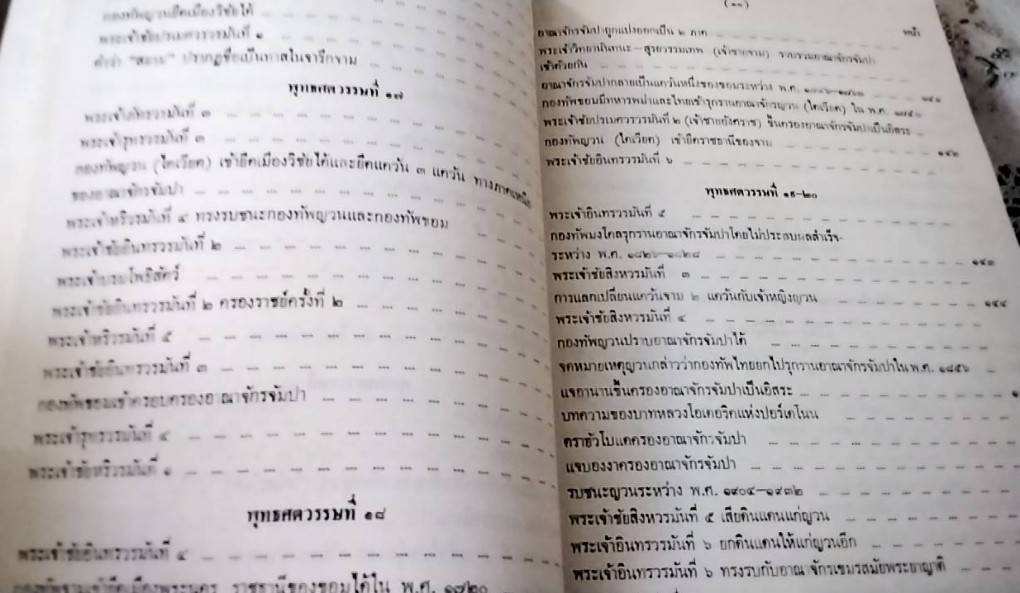 กองทัพญวนยึดเมืองวิชัยได้
พระเจ้าชัยปรเมศวรวรมันที่ ๑
คำว่า "สยาม" ปรากฏชื่อเป็นทาสในจารึกจาม
พุทธศตวรรษที่ ๑๗
พระเจ้าภัทรวรมันที่ ๓
พระเจ้ารุทรวรมันที่ ๓
กองทัพญวน (ไดเวียด) เข้ายึดเมืองวิชัยได้และยึดแคว้น ๓ แคว้น ทางภาคเหนือ
ของอาณาจักรจัมปา
พระเจ้าหริวรมันที่ ๔ ทรงรบชนะกองทัพญวนและกองทัพขอม
พระเจ้าชัยอินทรวรมันที่ ๒
พระเจ้าบรมโพธิสัตว์
พระเจ้าชัยอินทรวรมันที่ ๒ ครองราชย์ครั้งที่ ๒
พระเจ้าหริวรมันที่ ๕
พระเจ้าชัยอินทรวรมันที่ ๓
กองทัพขอมเข้าครอบครองอาณาจักรจัมปา
พระเจ้ารุทรวรมันที่ ๔
พระเจ้าชัยหริวรมันที่ ๑
พุทธศตวรรษที่ ๑๘
พระเจ้าชัยอินทรวรมันที่ ๔
กองทัพจามเข้ายึดเมืองพระนคร ราชธานีของขอมได้ใน พ.ศ. ๑๗๒๐
(๑๐)
หน้า
อาณาจักรจัมปาถูกแบ่งออกเป็น ๒ ภาค
พระเจ้าวิทยานันทนะ–สุรยวรรมเทพ (เจ้าชายจาม) รวบรวมอาณาจักรจัมปา
เข้าด้วยกัน
อาณาจักรจัมปากลายเป็นแคว้นหนึ่งของขอมระหว่าง พ.ศ. ๑๗๔๖–๑๗๖๓ ๑๔๑
กองทัพขอมมีทหารพม่าและไทยเข้ารุกรานอาณาจักรญวน (ไดเวียด) ใน พ.ศ. ๑๗๕๐
พระเจ้าชัยปรเมศวรวรมันที่ ๒ (เจ้าชายอังคราช) ขึ้นครองอาณาจักรจัมปาเป็นอิสระ
กองทัพญวน (ไดเวียด) เข้ายึดราชธานีของจาม ๑๔๒
พระเจ้าชัยอินทรวรมันที่ ๖
พุทธศตวรรษที่ ๑๙–๒๐
พระเจ้าอินทรวรมันที่ ๕
กองทัพมงโกลรุกรานอาณาจักรจัมปาโดยไม่ประสบผลสำเร็จ-
ระหว่าง พ.ศ. ๑๘๒๖–๑๘๒๘ ๑๔๓
พระเจ้าชัยสิงหวรมันที่ ๓
การแลกเปลี่ยนแคว้นจาม ๒ แคว้นกับเจ้าหญิงญวน ๑๔๔
พระเจ้าชัยสิงหวรมันที่ ๔
กองทัพญวนปราบอาณาจักรจัมปาได้
จดหมายเหตุญวนกล่าวว่ากองทัพไทยยกไปรุกรานอาณาจักรจัมปาใน พ.ศ. ๑๘๕๖
แจอานานขึ้นครองอาณาจักรจัมปาเป็นอิสระ
บทความของบาทหลวงโอเดอริคแห่งปอร์เดโนน
ตราฮัวโบแดครองอาณาจักรจัมปา
แจบองงาครองอาณาจักรจัมปา
รบชนะญวนระหว่าง พ.ศ. ๑๙๐๔–๑๙๓๒
พระเจ้าชัยสิงหวรมันที่ ๕ เสียดินแดนแก่ญวน
พระเจ้าอินทรวรมันที่ ๖ ยกดินแดนให้แก่ญวนอีก
พระเจ้าอินทรวรมันที่ ๖ ทรงรบกับอาณาจักรเขมรสมัยพระยาญาติ